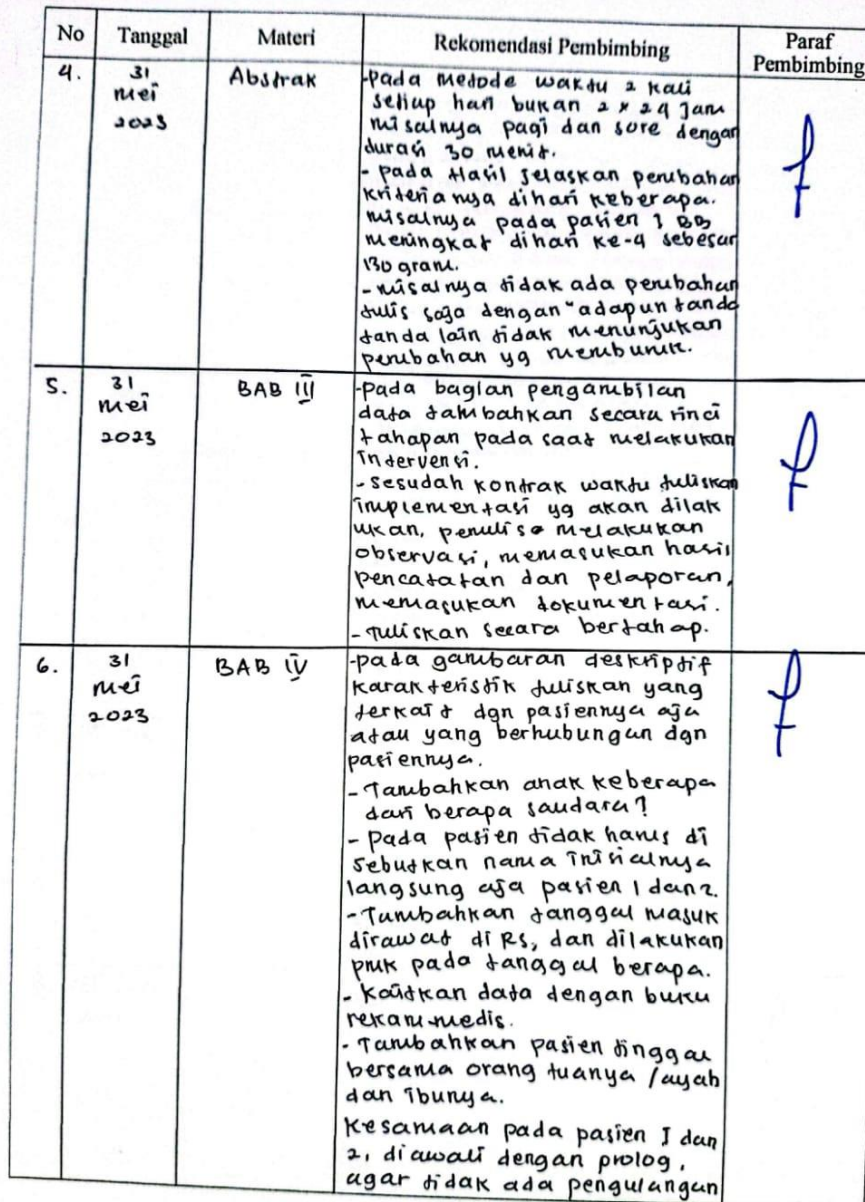 No Tanggal Materi Rekomendasi Pembimbing Paraf Pembimbing
4. 31 Mei 2023 Abstrak
-pada metode waktu 2 kali
setiap hari bukan 2 x 24 Jam
misalnya pagi dan sore dengan
durasi 30 menit.
- pada Hasil Jelaskan perubahan
kriterianya dihari keberapa.
misalnya pada pasien 1 BB
meningkat dihari ke-4 sebesar
130 gram.
- misalnya tidak ada perubahan
tulis saja dengan "adapun tanda
tanda lain tidak menunjukan
perubahan yg memburuk.
5. 31 Mei 2023 BAB III
-pada bagian pengambilan
data tambahkan secara rinci
tahapan pada saat melakukan
intervensi.
- sesudah kontrak waktu tuliskan
implementasi yg akan dilak
ukan, penulis melakukan
observasi, memasukan hasil
pencatatan dan pelaporan,
memasukan dokumentasi.
- Tuliskan secara bertahap.
6. 31 Mei 2023 BAB IV
-pada gambaran deskriptif
karakteristik tuliskan yang
terkait dgn pasiennya aja
atau yang berhubungan dgn
pasiennya.
- Tambahkan anak keberapa
dari berapa saudara?
- pada pasien tidak harus di
sebutkan nama inisialnya
langsung aja pasien 1 dan 2.
- Tambahkan tanggal masuk
dirawat di RS, dan dilakukan
pmk pada tanggal berapa.
- kaitkan data dengan buku
rekam medis.
- Tambahkan pasien tinggal
bersama orang tuanya /ayah
dan ibunya.
Kesamaan pada pasien I dan
2, di awali dengan prolog,
agar tidak ada pengulangan